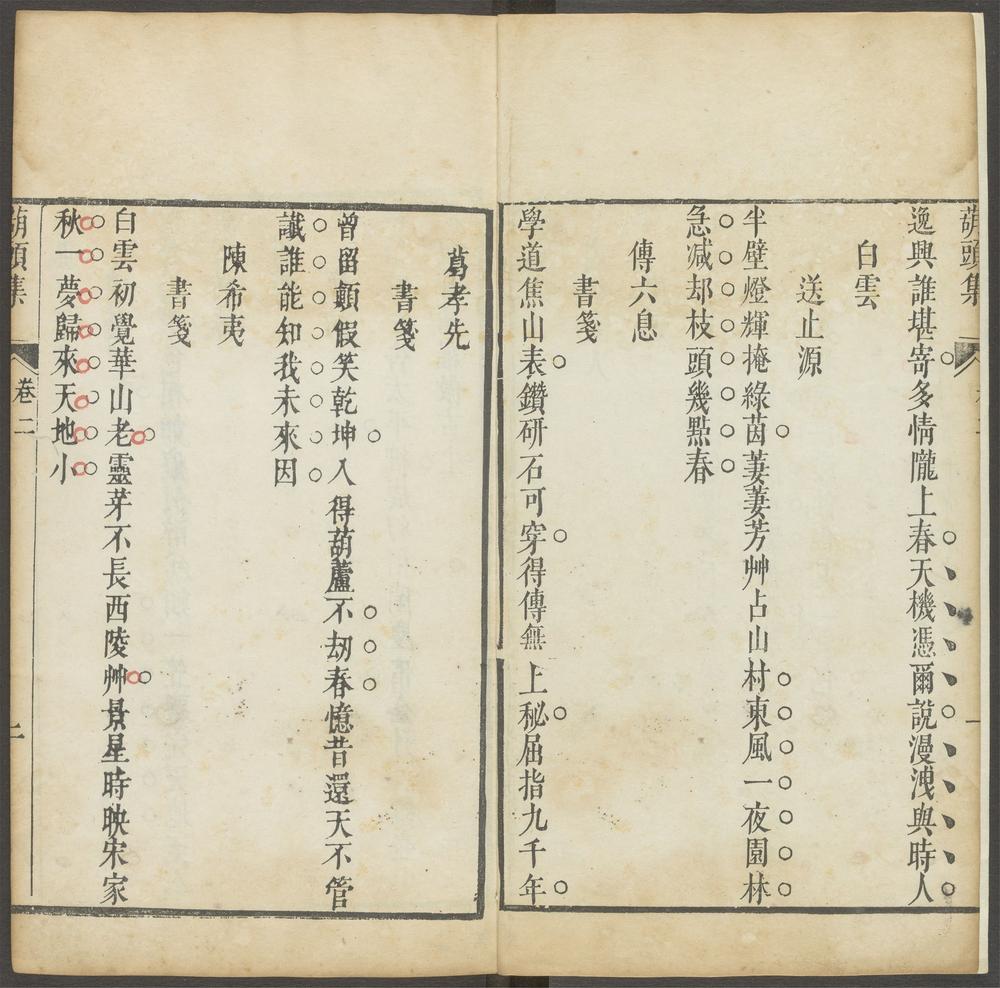 葫頭集
逸興誰堪寄多情隴上春天機憑爾說漫洩與時人
白雲
送止源
半壁燈輝掩綠茵萋萋芳艸占山村東風一夜園林
急减却枝頭幾點春
傳六息
書箋
學道焦山表鑽研石可穿得傳無上秘屈指九千年
葛孝先
書箋
曾留顚假笑乾坤入得葫蘆不劫春憶昔還天不管
讖誰能知我未來因
陳希夷
書箋
白雲初覺華山老靈芽不長西陵艸景星時映宋家
秋一夢歸來天地小
葫頭集
卷二
二